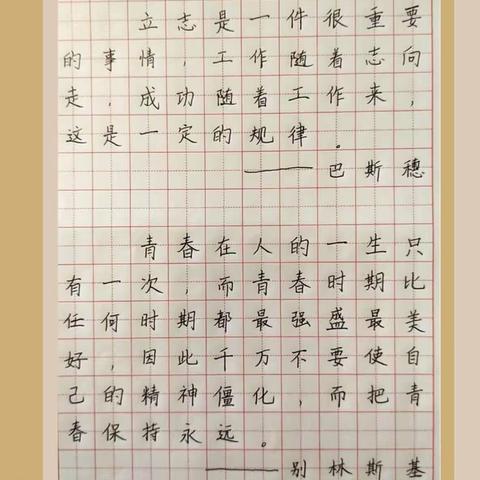 立志是一件很重要
的事情，工作随着志向
走，成功随着工作来，
这是一定的规律。
——巴斯穗
青春在人的一生只
有一次，而青春时期比
任何时期都最强盛最美
好，因此千万不要使自
己的精神僵化，而把青
春保持永远。
——别林斯基